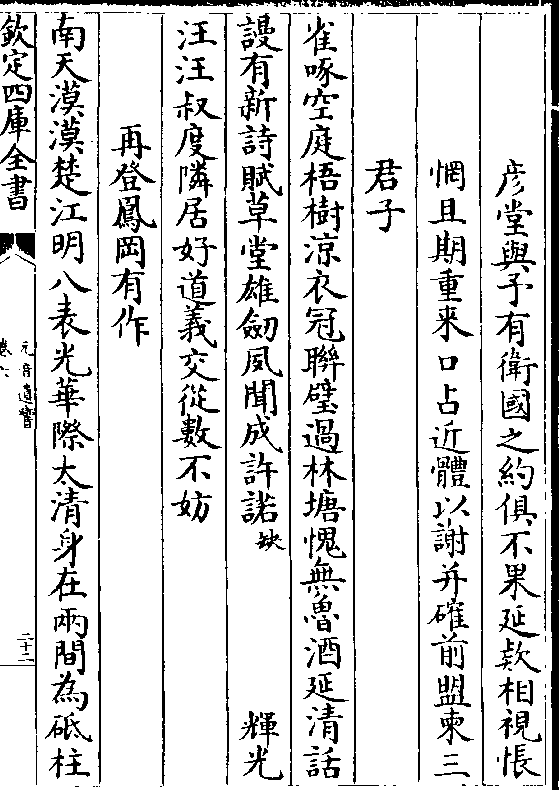 彦堂與予有衛國之約俱不果延欵相視悵
惘且期重来口占近體以謝并確前盟柬三
君子
雀啄空庭梧樹涼衣冠聯璧過林塘愧無魯酒延清話
謾有新詩賦草堂雄劒夙聞成許諾缺輝光
汪汪叔度隣居好道義交從數不妨
再登鳳岡有作
南天漠漠楚江明八表光華際太清身在兩間為砥柱
欽定四庫全書
元音遺響
二十二